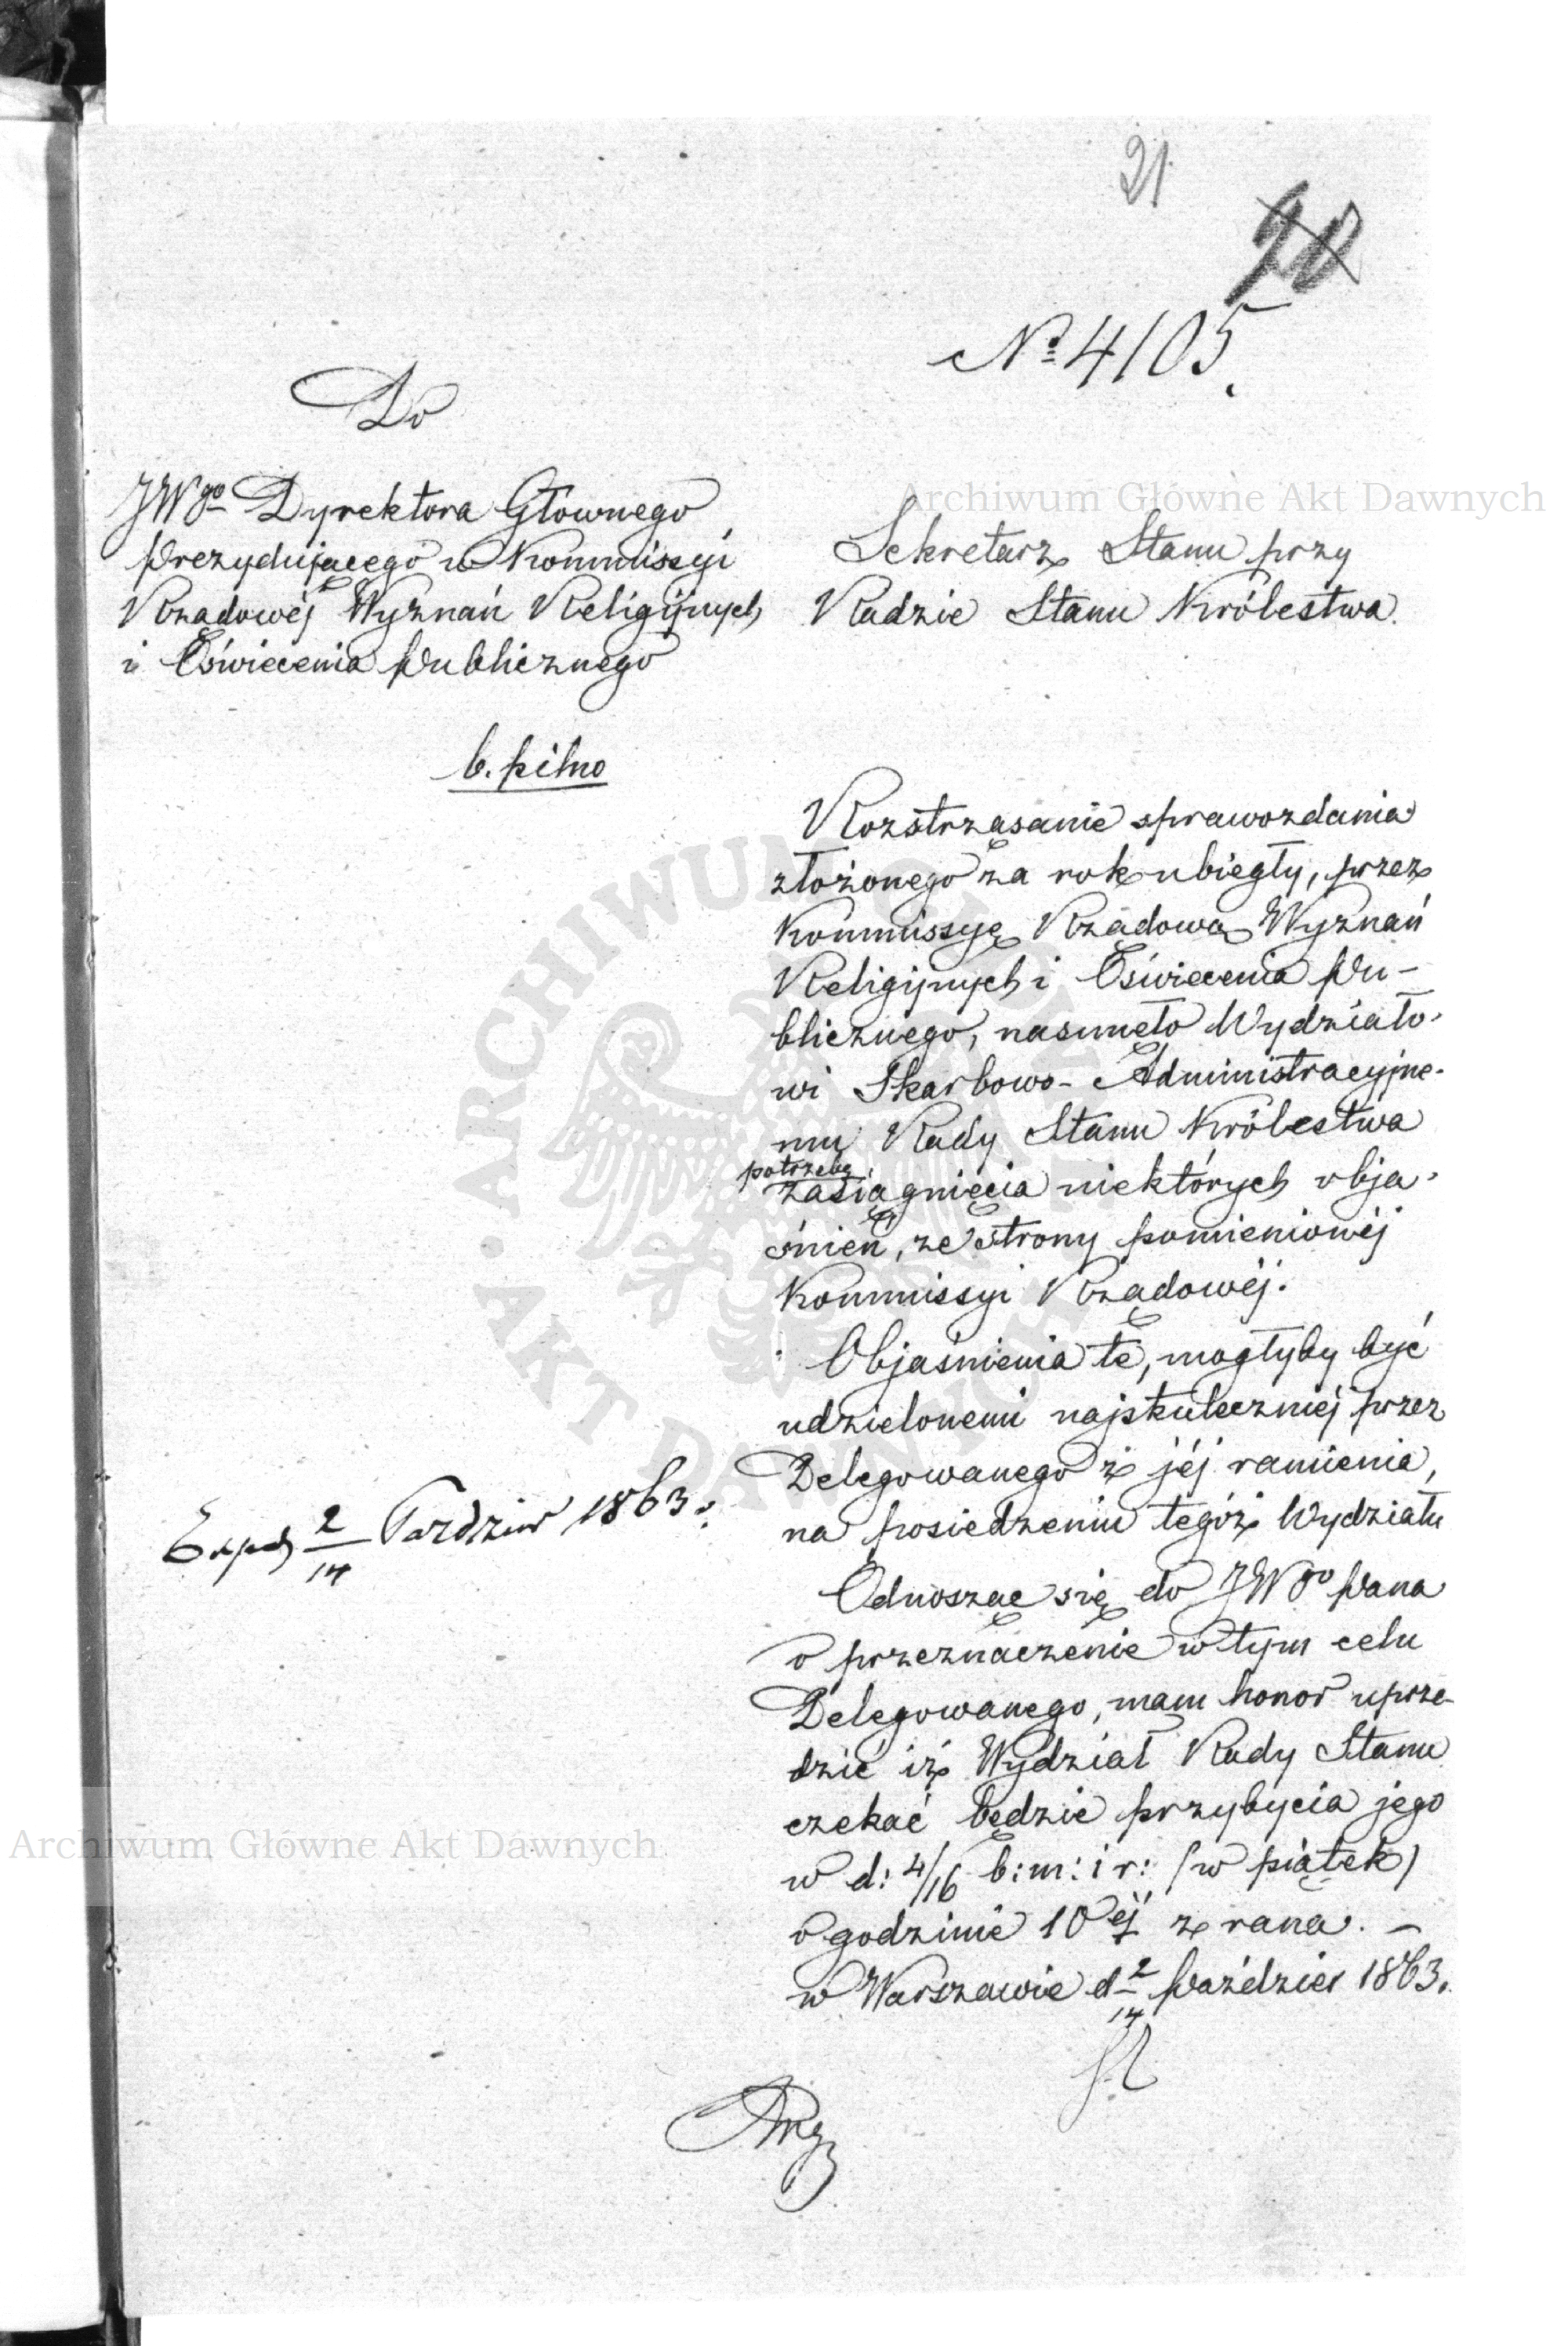 21
20
№ 4105.
Do
JWgo Dyrektora Głównego
Prezydującego w Kommissyi
Rządowéj Wyznań Religijnych
i Oświecenia Publicznego
b. pilno
Archiwum Główne Akt Dawnych
Sekretarz Stanu przy
Radzie Stanu Królestwa.
Rozstrząsanie sprawozdania
złożonego za rok ubiegły, przez
Kommissyę Rządową Wyznań
Religijnych i Oświecenia Pu-
blicznego, nasunęło Wydziało-
wi Skarbowo-Administracyjne-
mu Rady Stanu Królestwa
potrzebę
zasiągnięcia niektórych obja-
śnień, ze strony pomienionéj
Kommissyi Rządowéj.
Objaśnienia te, mogłyby być
udzielonemi najskuteczniéj przez
Delegowanego z jéj ramienia,
na posiedzeniu tegóż Wydziału
Odnosząc się do JWgo Pana
o przeznaczenie w tym celu
Delegowanego, mam honor uprze-
dzić iż Wydział Rady Stanu
czekać będzie przybycia jego
w d: 4/16 b: m: i r: (w piątek)
o godzinie 10éj z rana. –
w Warszawie d 2/14 Paździer 1863.
Exped 2/14 Pazdzier 1863 r.
ARCHIWUM GŁÓWNE AKT DAWNYCH
Archiwum Główne Akt Dawnych